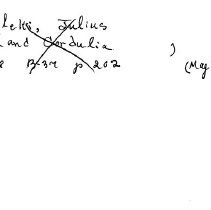 leki, Julius
and Cordulia )
B-32 p 202 (May